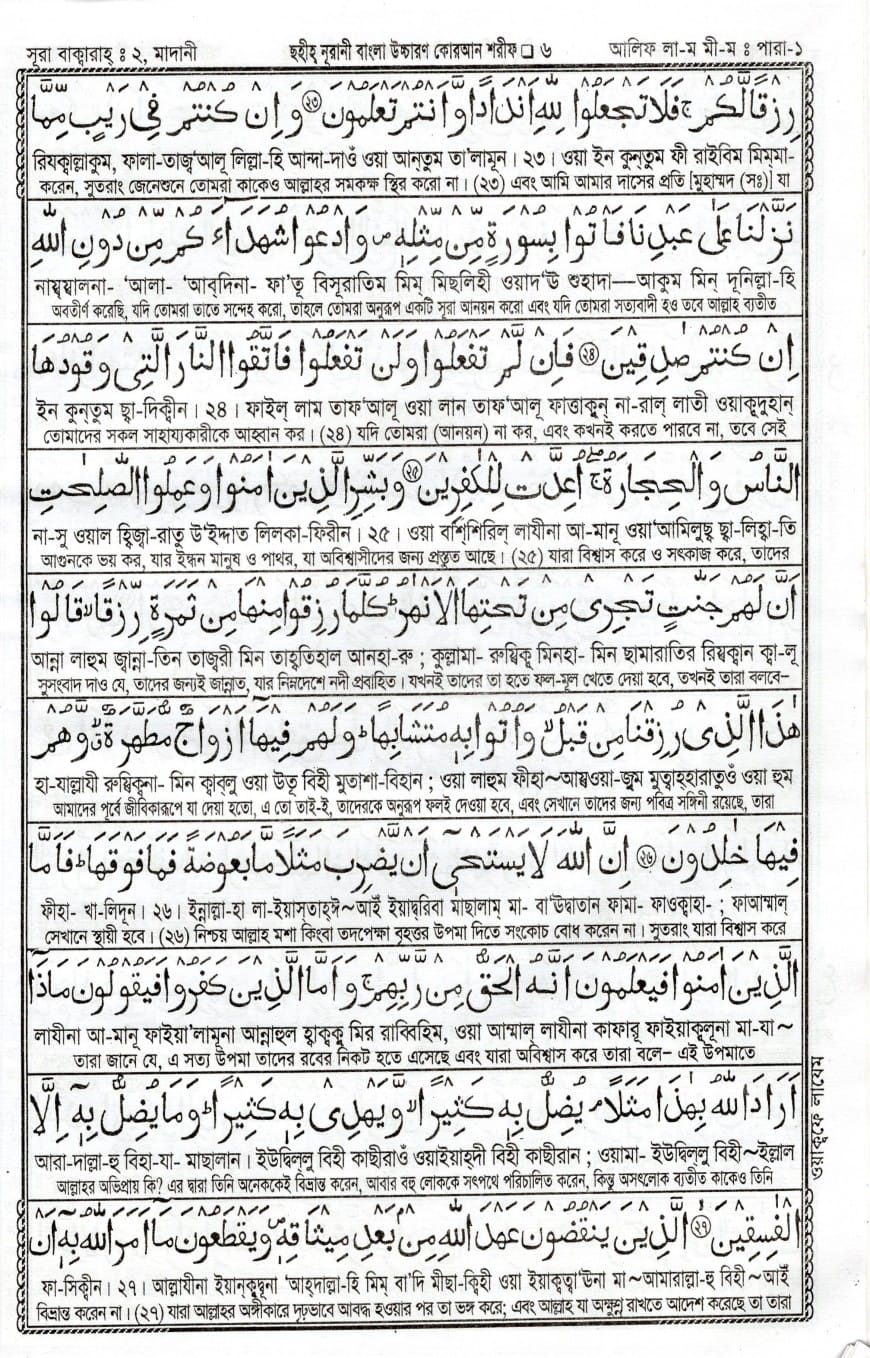 সূরা বাক্বারাহ্ ঃ ২, মাদানী
ছহীহ্ নূরানী বাংলা উচ্চারণ কোরআন শরীফ □ ৬
আলিফ লা-ম মী-ম ঃ পারা-১
رِزْقًا لَّكُمْ ۚ فَلَا تَجْعَلُوْا لِلّٰهِ اَنْدَادًا وَّاَنْتُمْ تَعْلَمُوْنَ ﴿٢٣﴾ وَاِنْ كُنْتُمْ فِىْ رَيْبٍ مِّمَّا
রিযক্বাল্লাকুম, ফালা-তাজ্ব‘আলূ লিল্লা-হি আন্দা-দাওঁ ওয়া আন্‌তুম তা‘লামূন। ২৩। ওয়া ইন কুন্‌তুম ফী রাইবিম মিম্‌মা-
করেন, সুতরাং জেনেশুনে তোমরা কাকেও আল্লাহর সমকক্ষ স্থির করো না। (২৩) এবং আমি আমার দাসের প্রতি [মুহাম্মদ (সঃ)] যা
نَزَّلْنَا عَلٰى عَبْدِنَا فَاْتُوْا بِسُوْرَةٍ مِّنْ مِّثْلِهٖ ۪ وَادْعُوْا شُهَدَآءَكُمْ مِّنْ دُوْنِ اللّٰهِ
নায্‌যালনা- ‘আলা- ‘আব্‌দিনা- ফা’তূ বিসূরাতিম মিম্ মিছলিহী ওয়াদ‘ঊ শুহাদা—আকুম মিন্ দূনিল্লা-হি
অবতীর্ণ করেছি, যদি তোমরা তাতে সন্দেহ করো, তাহলে তোমরা অনুরূপ একটি সূরা আনয়ন করো এবং যদি তোমরা সত্যবাদী হও তবে আল্লাহ ব্যতীত
اِنْ كُنْتُمْ صٰدِقِيْنَ ﴿٢٤﴾ فَاِنْ لَّمْ تَفْعَلُوْا وَلَنْ تَفْعَلُوْا فَاتَّقُوا النَّارَ الَّتِىْ وَقُوْدُهَا
ইন কুন্‌তুম ছ্বা-দিক্বীন। ২৪। ফাইল্ লাম তাফ‘আলূ ওয়া লান তাফ‘আলূ ফাত্তাক্বুন্ না-রাল্ লাতী ওয়াক্বূদুহান্
তোমাদের সকল সাহায্যকারীকে আহ্বান কর। (২৪) যদি তোমরা (আনয়ন) না কর, এবং কখনই করতে পারবে না, তবে সেই
النَّاسُ وَالْحِجَارَةُ ۚ اُعِدَّتْ لِلْكٰفِرِيْنَ ﴿٢٥﴾ وَبَشِّرِ الَّذِيْنَ اٰمَنُوْا وَعَمِلُوا الصّٰلِحٰتِ
না-সু ওয়াল হ্বিজ্বা-রাতু উ‘ইদ্দাত লিলকা-ফিরীন। ২৫। ওয়া বাশ্‌শিরিল্ লাযীনা আ-মানূ ওয়া‘আমিলুছ্ব ছ্বা-লিহ্বা-তি
আগুনকে ভয় কর, যার ইন্ধন মানুষ ও পাথর, যা অবিশ্বাসীদের জন্য প্রস্তুত আছে। (২৫) যারা বিশ্বাস করে ও সৎকাজ করে, তাদের
اَنَّ لَهُمْ جَنّٰتٍ تَجْرِىْ مِنْ تَحْتِهَا الْاَنْهٰرُ ؕ كُلَّمَا رُزِقُوْا مِنْهَا مِنْ ثَمَرَةٍ رِّزْقًا ۙ قَالُوْا
আন্না লাহুম জ্বান্না-তিন তাজ্বরী মিন তাহ্বতিহাল আনহা-রু ; কুল্লামা- রুযিক্বূ মিনহা- মিন ছামারাতির রিয্‌ক্বান ক্বা-লূ
সুসংবাদ দাও যে, তাদের জন্যই জান্নাত, যার নিম্নদেশে নদী প্রবাহিত। যখনই তাদের তা হতে ফল-মূল খেতে দেয়া হবে, তখনই তারা বলবে–
هٰذَا الَّذِىْ رُزِقْنَا مِنْ قَبْلُ ۙ وَاُتُوْا بِهٖ مُتَشَابِهًا ؕ وَلَهُمْ فِيْهَآ اَزْوَاجٌ مُّطَهَّرَةٌ ۙ وَّهُمْ
হা-যাল্লাযী রুযিক্বনা- মিন ক্বাব্‌লু ওয়া উতূ বিহী মুতাশা-বিহান ; ওয়া লাহুম ফীহা~আয্‌ওয়া-জুম মুত্বাহ্‌হারাতুওঁ ওয়া হুম
আমাদের পূর্বে জীবিকারূপে যা দেয়া হতো, এ তো তাই-ই, তাদেরকে অনুরূপ ফলই দেওয়া হবে, এবং সেখানে তাদের জন্য পবিত্র সঙ্গিনী রয়েছে, তারা
فِيْهَا خٰلِدُوْنَ ﴿٢٦﴾ اِنَّ اللّٰهَ لَا يَسْتَحْىٖٓ اَنْ يَّضْرِبَ مَثَلًا مَّا بَعُوْضَةً فَمَا فَوْقَهَا ؕ فَاَمَّا
ফীহা- খা-লিদূন। ২৬। ইন্নাল্লা-হা লা-ইয়াস্‌তাহ্‌ই~আইঁ ইয়াদ্বরিবা মাছালাম্ মা- বা‘ঊদ্বাতান ফামা- ফাওক্বাহা- ; ফাআম্মাল্
সেখানে স্থায়ী হবে। (২৬) নিশ্চয় আল্লাহ মশা কিংবা তদপেক্ষা বৃহত্তর উপমা দিতে সংকোচ বোধ করেন না। সুতরাং যারা বিশ্বাস করে
الَّذِيْنَ اٰمَنُوْا فَيَعْلَمُوْنَ اَنَّهُ الْحَقُّ مِنْ رَّبِّهِمْ ۚ وَاَمَّا الَّذِيْنَ كَفَرُوْا فَيَقُوْلُوْنَ مَاذَآ
লাযীনা আ-মানূ ফাইয়া‘লামূনা আন্নাহুল হ্বাক্বক্বু মির রাব্বিহিম, ওয়া আম্মাল্ লাযীনা কাফারূ ফাইয়াক্বূলূনা মা-যা~
তারা জানে যে, এ সত্য উপমা তাদের রবের নিকট হতে এসেছে এবং যারা অবিশ্বাস করে তারা বলে– এই উপমাতে
اَرَادَ اللّٰهُ بِهٰذَا مَثَلًا ۘ يُضِلُّ بِهٖ كَثِيْرًا ۙ وَّيَهْدِىْ بِهٖ كَثِيْرًا ؕ وَمَا يُضِلُّ بِهٖٓ اِلَّا
আরা-দাল্লা-হু বিহা-যা- মাছালান। ইউদ্বিল্লু বিহী কাছীরাওঁ ওয়াইয়াহ্‌দী বিহী কাছীরান ; ওয়ামা- ইউদ্বিল্লু বিহী~ইল্লাল
আল্লাহর অভিপ্রায় কি? এর দ্বারা তিনি অনেককেই বিভ্রান্ত করেন, আবার বহু লোককে সৎপথে পরিচালিত করেন, কিন্তু অসৎলোক ব্যতীত কাকেও তিনি
ওয়াক্বফে লাযেম
الْفٰسِقِيْنَ ﴿٢٧﴾ الَّذِيْنَ يَنْقُضُوْنَ عَهْدَ اللّٰهِ مِنْۢ بَعْدِ مِيْثَاقِهٖ ۪ وَيَقْطَعُوْنَ مَآ اَمَرَ اللّٰهُ بِهٖٓ اَنْ
ফা-সিক্বীন। ২৭। আল্লাযীনা ইয়ান্‌ক্বুদ্বূনা ‘আহ্‌দাল্লা-হি মিম্ বা‘দি মীছা-ক্বিহী ওয়া ইয়াক্বত্বা‘ঊনা মা~আমারাল্লা-হু বিহী~আইঁ
বিভ্রান্ত করেন না। (২৭) যারা আল্লাহর অঙ্গীকারে দৃঢ়ভাবে আবদ্ধ হওয়ার পর তা ভঙ্গ করে; এবং আল্লাহ যা অক্ষুণ্ণ রাখতে আদেশ করেছে তা তারা